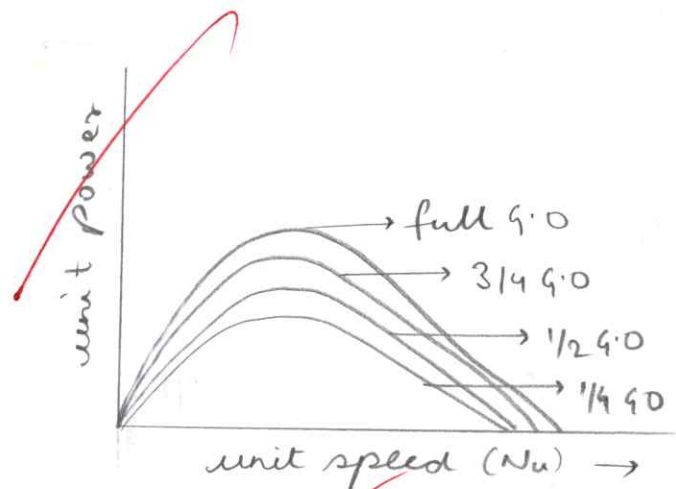 unit power
full G.O
3/4 G.O
1/2 G.O
1/4 GO
unit speed (Nu) →